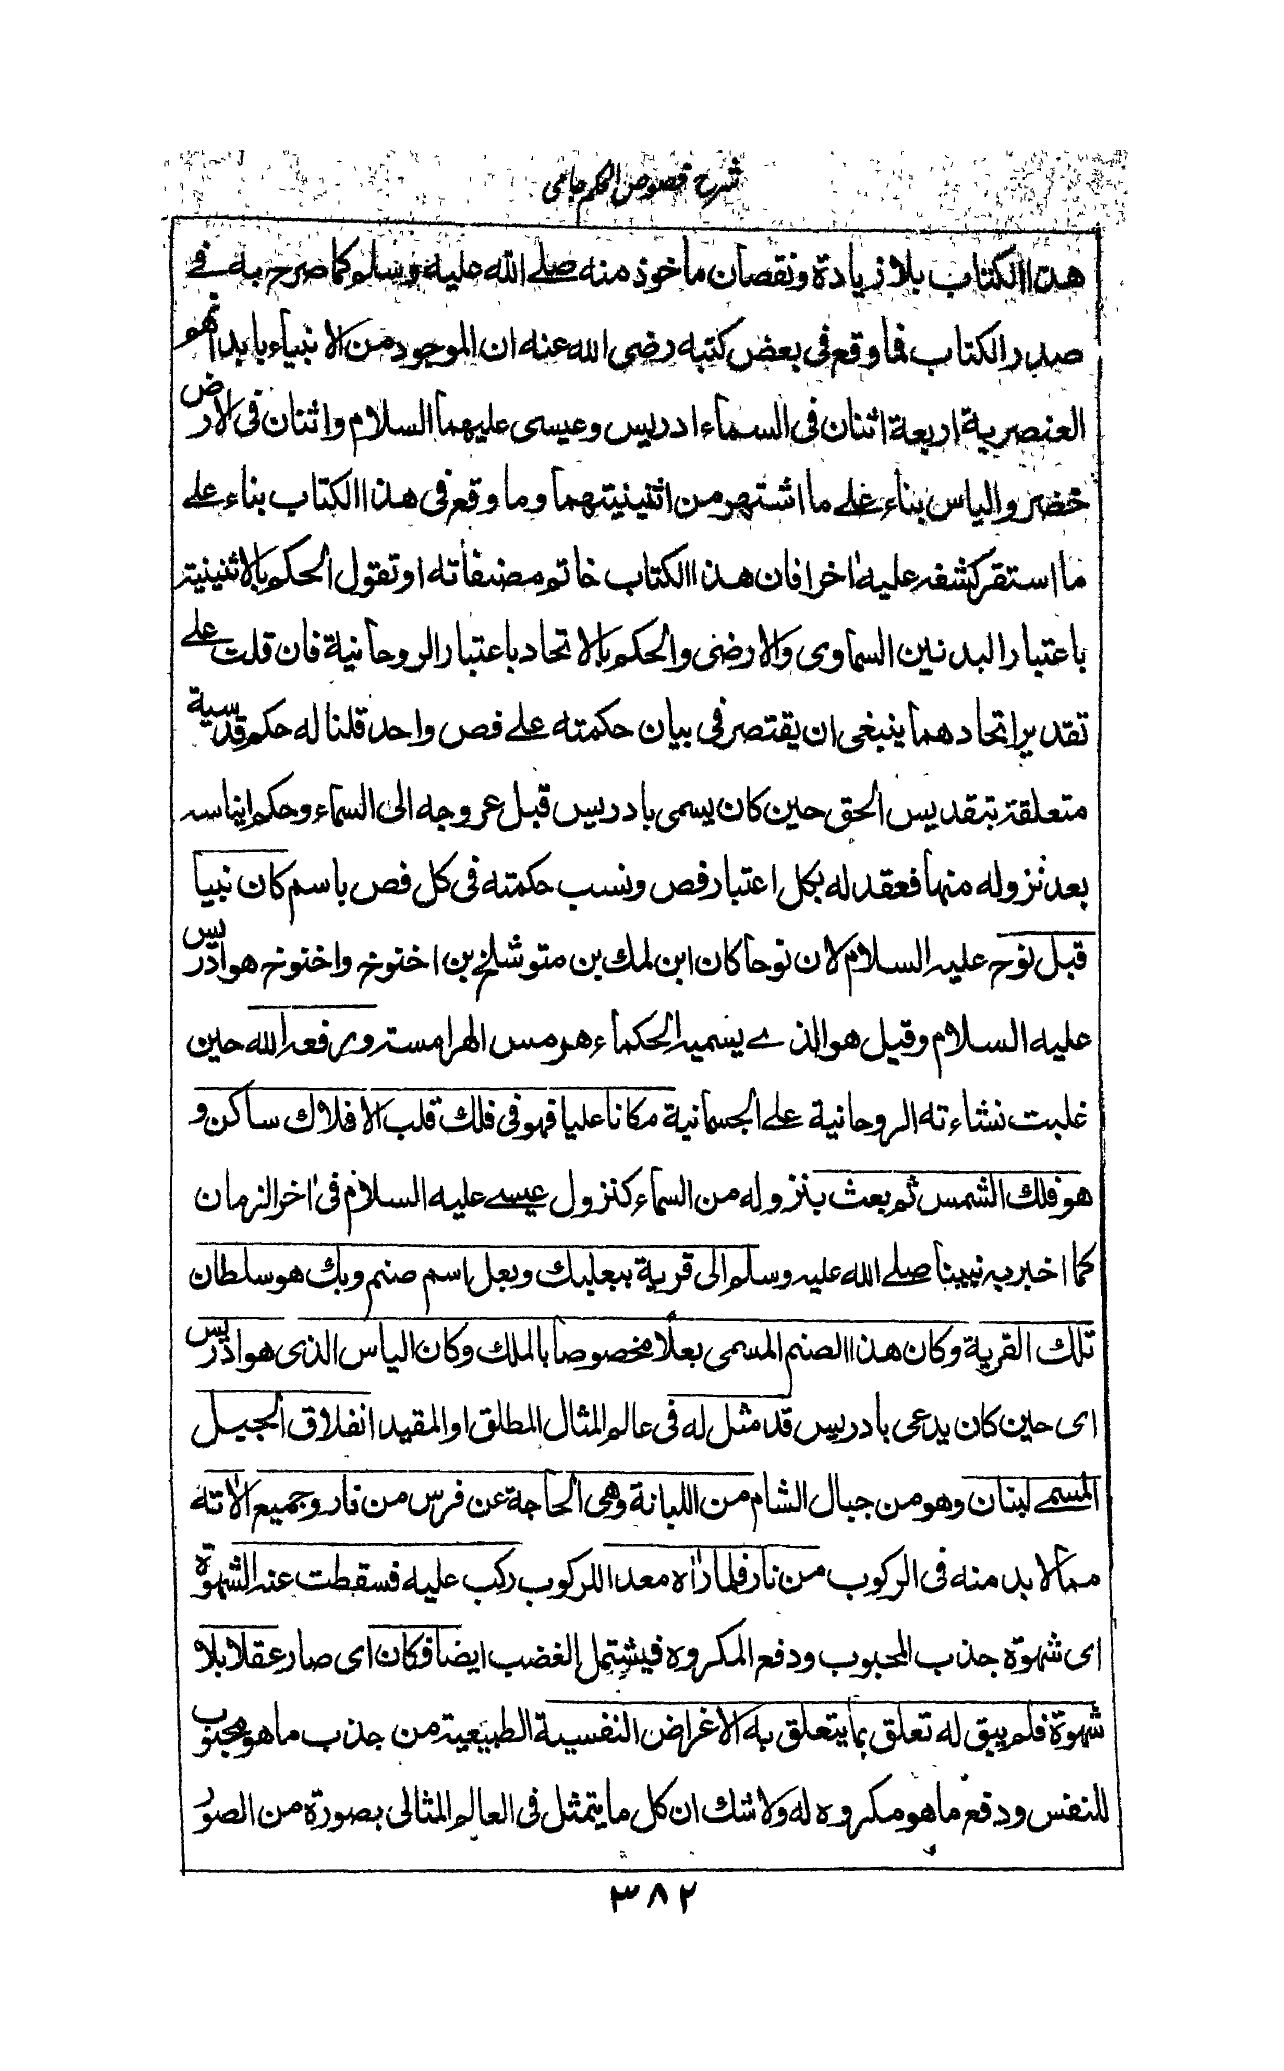 شرح فصوص الحكم جامی
هذا الكتاب بلا زيادة ونقصان ماخوذ منه صلے الله عليه وسلم كما صرح به فے
صدر الكتاب فما وقع فى بعض كتبه رضى الله عنه ان الموجود من الانبياء بابدانهم
العنصرية اربعة اثنان فى السماء ادريس وعيسى عليهما السلام واثنان فى الارض
خضر والياس بناء علے ما اشتهر من اثنينيتهما وما وقع فى هذا الكتاب بناء علے
ما استقر كشفه عليه اٰخرا فان هذا الكتاب خاتم مصنفاته او تقول الحكم بالاثنينية
باعتبار البدنين السماوى والارضى والحكم بالاتحاد باعتبار الروحانية فان قلت علے
تقدير اتحادهما ينبغى ان يقتصر فى بيان حكمته علے فص واحد قلنا له حكم قدسية
متعلقة بتقديس الحق حين كان يسمى بادريس قبل عروجه الى السماء وحكم ايناسه
بعد نزوله منها فعقد له بكل اعتبار فص ونسب حكمته فى كل فص باسم كان نبيا
قبل نوح عليه السلام لان نوحا كان ابن لمك بن متوشلخ بن اخنوخ واخنوخ هو ادريس
عليه السلام وقيل هو الذے يسميه الحكماء هرمس الهرامسة ورفعه الله حين
غلبت نشاءته الروحانية علے الجسمانية مكانا عليا فهو فى فلك قلب الافلاك ساكن و
هو فلك الشمس ثم بعث بنزوله من السماء كنزول عيسے عليه السلام فى اٰخر الزمان
كما اخبر به نبينا صلے الله عليه وسلم الى قرية ببعلبك وبعل اسم صنم وبك هو سلطان
تلك القرية وكان هذا الصنم المسمى بعلا مخصوصا بالملك وكان الياس الذى هو ادريس
اى حين كان يدعى بادريس قد مثل له فى عالم المثال المطلق او المقيد انفلاق الجبل
المسمے لبنان وهو من جبال الشام من اللبانة وهى الحاجة عن فرس من نار وجميع الاته
مما لا بد منه فى الركوب من نار فلما رأه معدا للركوب ركب عليه فسقطت عنه الشهوة
اى شهوة جذب المحبوب ودفع المكروه فيشتمل الغضب ايضا فكان اى صار عقلا بلا
شهوة فلم يبق له تعلق بما يتعلق به الاغراض النفسية الطبيعية من جذب ما هو محبوب
للنفس ودفع ما هو مكروه له ولا شك ان كل ما يتمثل فى العالم المثالى بصورة من الصور
٣٨٢